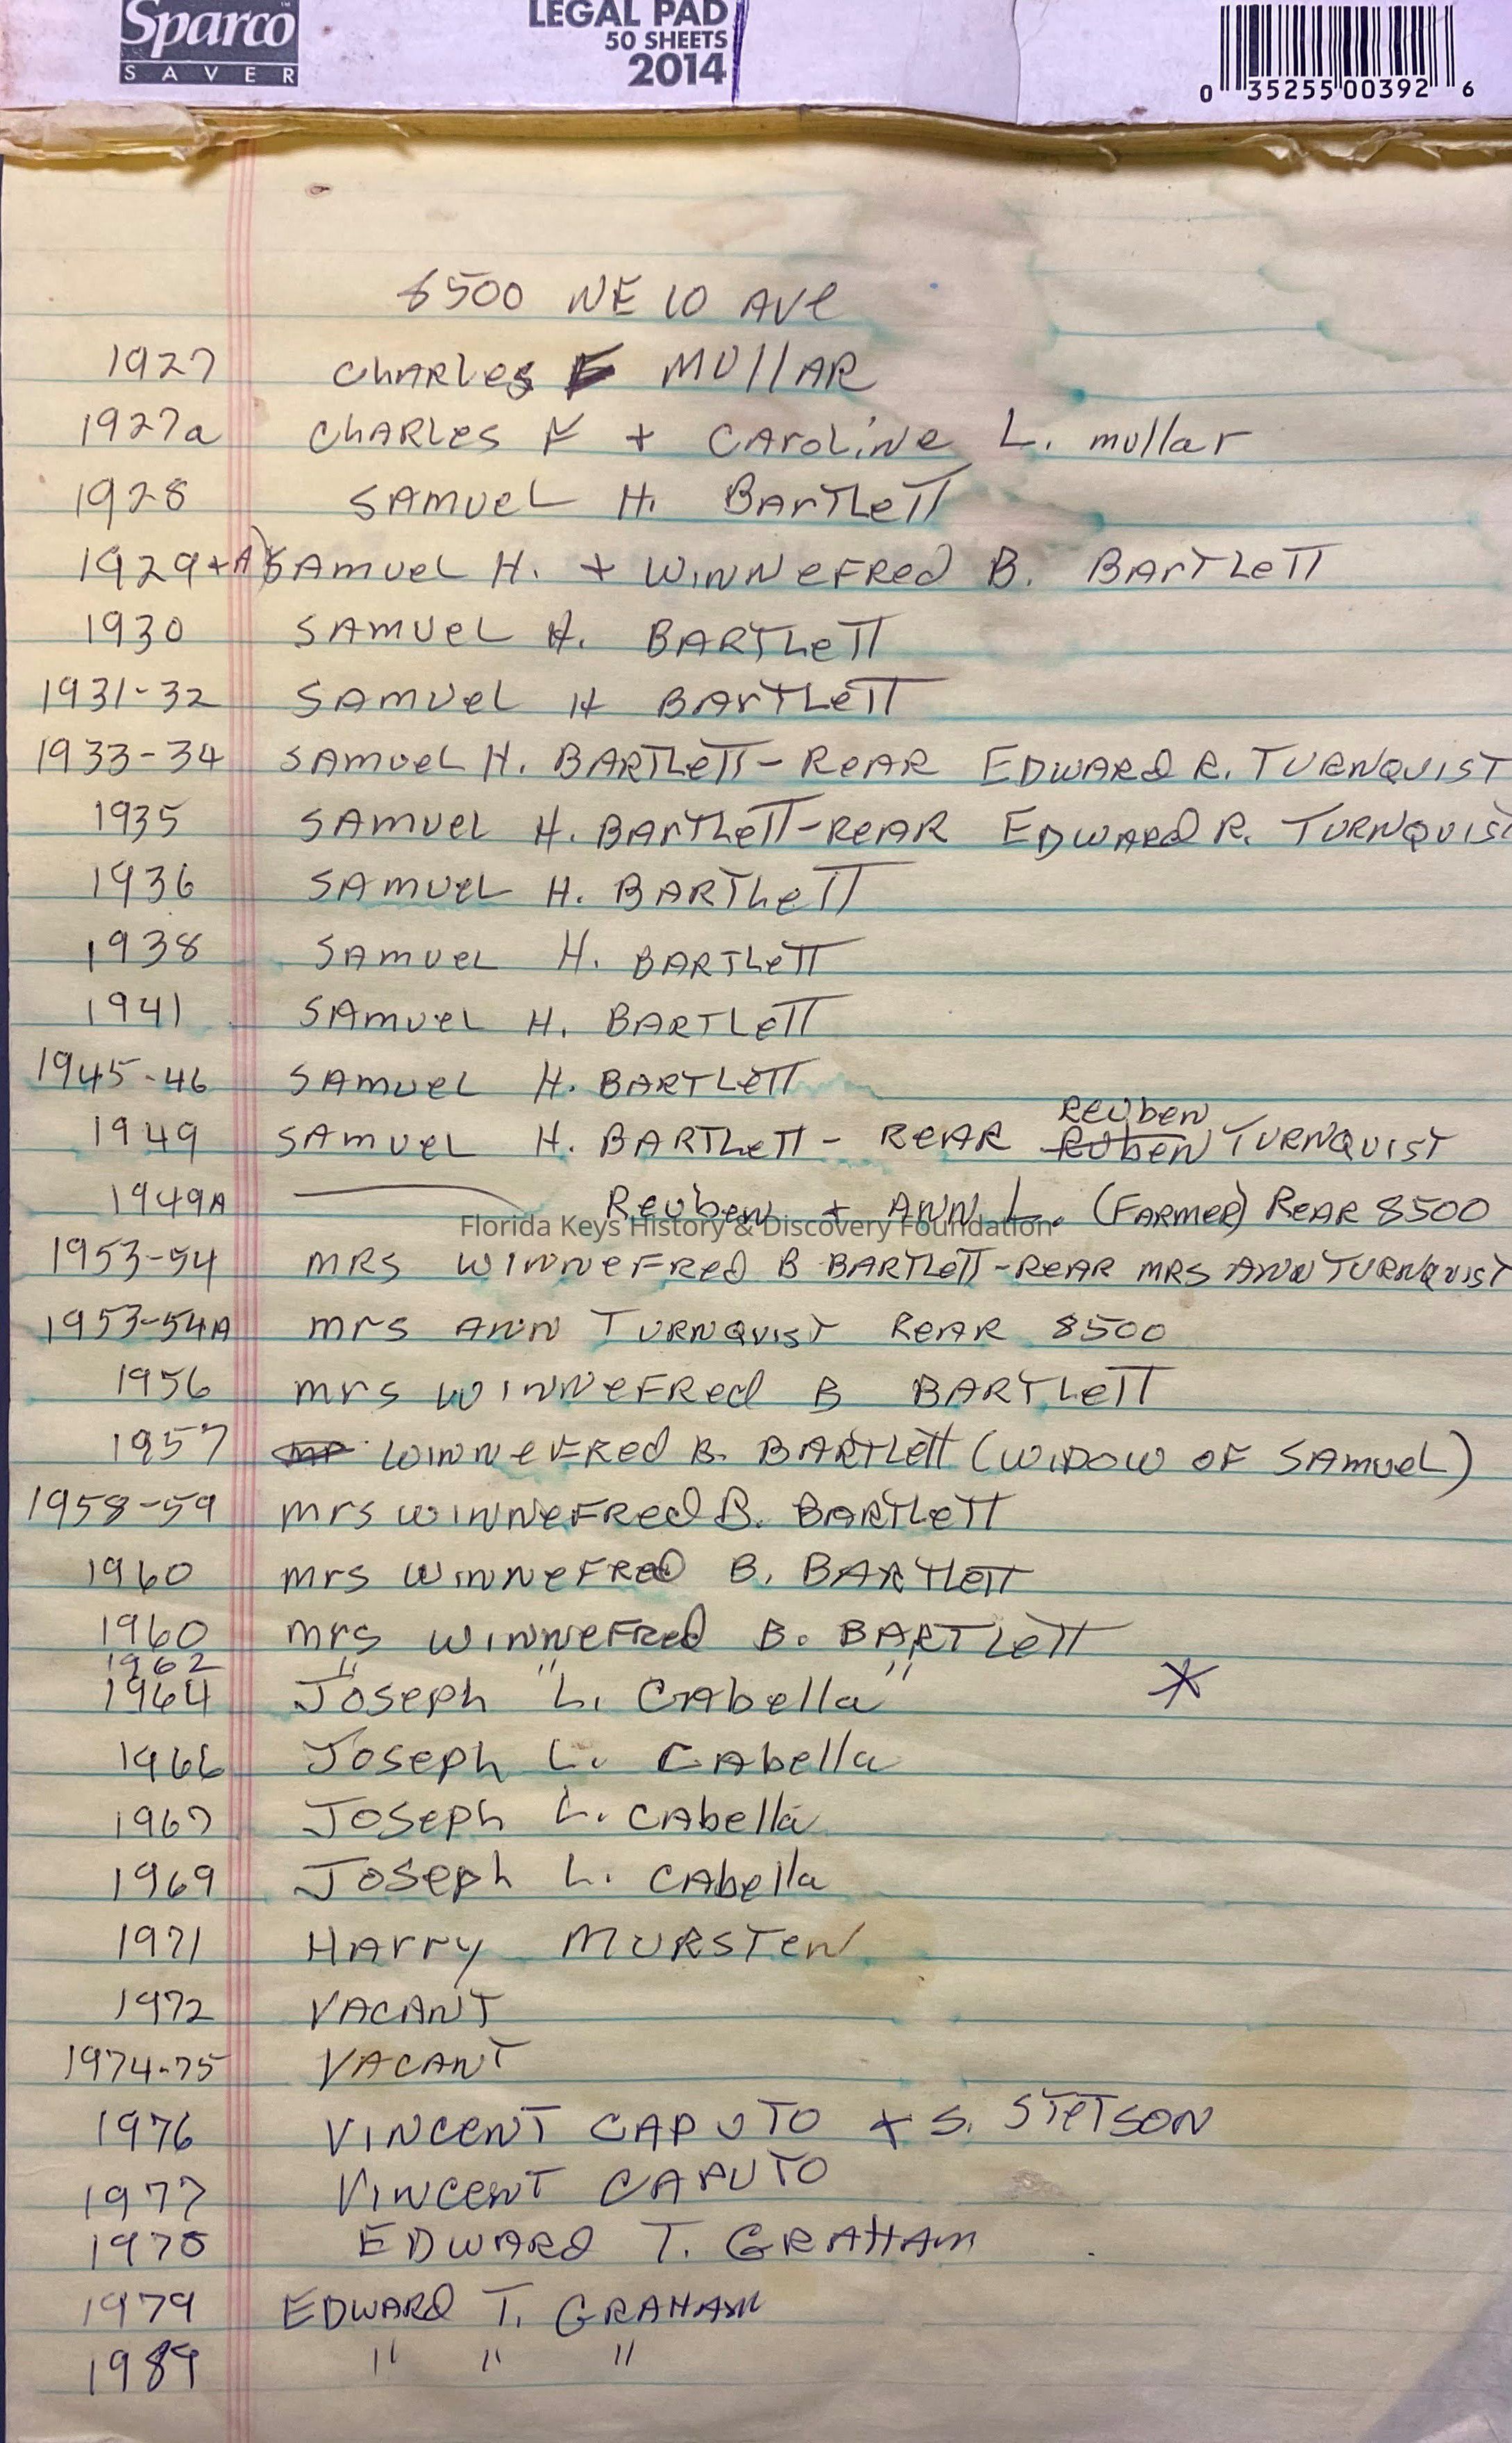 Sparco
SAVER
LEGAL PAD
50 SHEETS
2014
0 35255 00392 6
8500 NE 10 AVE
1927 CHARLES F MULLAR
1927a CHARLES F + CAROLINE L. mullar
1928 SAMUEL H. BARTLETT
1929+A) SAMUEL H. + WINNEFRED B. BARTLETT
1930 SAMUEL H. BARTLETT
1931-32 SAMUEL H BARTLETT
1933-34 SAMUEL H. BARTLETT - REAR EDWARD R. TURNQUIST
1935 SAMUEL H. BARTLETT - REAR EDWARD R. TURNQUIST
1936 SAMUEL H. BARTLETT
1938 SAMUEL H. BARTLETT
1941 SAMUEL H. BARTLETT
1945-46 SAMUEL H. BARTLETT
Reuben
1949 SAMUEL H. BARTLETT - REAR Ruben TURNQUIST
1949A Reuben + ANN L. (FARMER) REAR 8500
Florida Keys History & Discovery Foundation
1953-54 MRS WINNEFRED B BARTLETT - REAR MRS ANN TURNQUIST
1953-54A mrs ANN TURNQUIST REAR 8500
1956 mrs WINNEFRED B BARTLETT
1957 WINNEFRED B. BARTLETT (WIDOW OF SAMUEL)
1958-59 mrs WINNEFRED B. BARTLETT
1960 mrs WINNEFRED B. BARTLETT
1960 mrs WINNEFRED B. BARTLETT
1962 " " "
1964 Joseph L. Cabella *
1966 Joseph L. Cabella
1967 Joseph L. Cabella
1969 Joseph L. Cabella
1971 HARRY MURSTEN
1972 VACANT
1974-75 VACANT
1976 VINCENT CAPUTO + S. STETSON
1977 VINCENT CAPUTO
1978 EDWARD T. GRAHAM
1979 EDWARD T. GRAHAM
1989 " " "